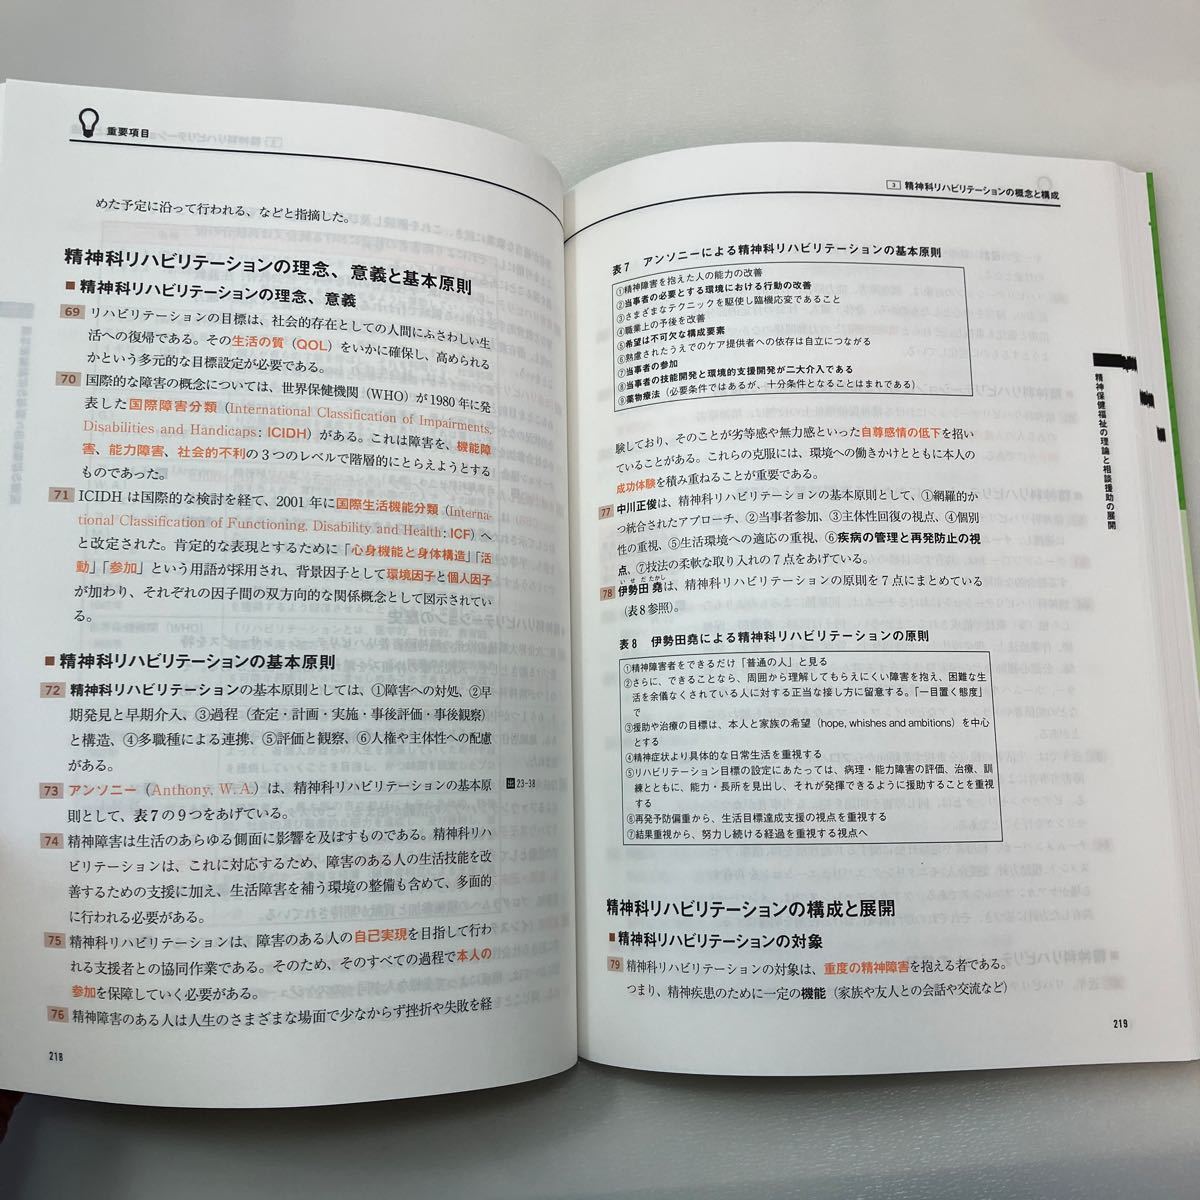 重要項目
めた予定に沿って行われる、などと指摘した。
精神科リハビリテーションの理念、意義と基本原則
■ 精神科リハビリテーションの理念、意義
69 リハビリテーションの目標は、社会的存在としての人間にふさわしい生
活への復帰である。その生活の質（QOL）をいかに確保し、高められる
かという多元的な目標設定が必要である。
70 国際的な障害の概念については、世界保健機関（WHO）が1980年に発
表した国際障害分類（International Classification of Impairments,
Disabilities and Handicaps: ICIDH）がある。これは障害を、機能障
害、能力障害、社会的不利の3つのレベルで階層的にとらえようとする
ものであった。
71 ICIDHは国際的な検討を経て、2001年に国際生活機能分類（Interna-
tional Classification of Functioning, Disability and Health: ICF）へ
と改定された。肯定的な表現とするために「心身機能と身体構造」「活
動」「参加」という用語が採用され、背景因子として環境因子と個人因子
が加わり、それぞれの因子間の双方向的な関係概念として図示されてい
る。
■ 精神科リハビリテーションの基本原則
72 精神科リハビリテーションの基本原則としては、①障害への対処、②早
期発見と早期介入、③過程（査定・計画・実施・事後評価・事後観察）
と構造、④多職種による連携、⑤評価と観察、⑥人権や主体性への配慮
がある。
73 アンソニー（Anthony, W. A.）は、精神科リハビリテーションの基本原
則として、表7の9つをあげている。
出 23-38
74 精神障害は生活のあらゆる側面に影響を及ぼすものである。精神科リハ
ビリテーションは、これに対応するため、障害のある人の生活技能を改
善するための支援に加え、生活障害を補う環境の整備も含めて、多面的
に行われる必要がある。
75 精神科リハビリテーションは、障害のある人の自己実現を目指して行わ
れる支援者との協同作業である。そのため、そのすべての過程で本人の
参加を保障していく必要がある。
76 精神障害のある人は人生のさまざまな場面で少なからず挫折や失敗を経
218
3 精神科リハビリテーションの概念と構成
表7 アンソニーによる精神科リハビリテーションの基本原則
①精神障害を抱えた人の能力の改善
②当事者の必要とする環境における行動の改善
③さまざまなテクニックを駆使し臨機応変であること
④職業上の予後を改善
⑤希望は不可欠な構成要素
⑥熟慮されたうえでのケア提供者への依存は自立につながる
⑦当事者の参加
⑧当事者の技能開発と環境的支援開発が二大介入である
⑨薬物療法（必要条件ではあるが、十分条件となることはまれである）
験しており、そのことが劣等感や無力感といった自尊感情の低下を招い
ていることがある。これらの克服には、環境への働きかけとともに本人の
成功体験を積み重ねることが重要である。
77 中川正俊は、精神科リハビリテーションの基本原則として、①網羅的か
つ統合されたアプローチ、②当事者参加、③主体性回復の視点、④個別
性の重視、⑤生活環境への適応の重視、⑥疾病の管理と再発防止の視
点、⑦技法の柔軟な取り入れの7点をあげている。
いせだたかし
78 伊勢田堯は、精神科リハビリテーションの原則を7点にまとめている
（表8参照）。
表8 伊勢田堯による精神科リハビリテーションの原則
①精神障害者をできるだけ「普通の人」と見る
②さらに、できることなら、周囲から理解してもらえにくい障害を抱え、困難な生
活を余儀なくされている人に対する正当な接し方に留意する。「一目置く態度」
で
③援助や治療の目標は、本人と家族の希望（hope, whishes and ambitions）を中心
とする
④精神症状より具体的な日常生活を重視する
⑤リハビリテーション目標の設定にあたっては、病理・能力障害の評価、治療、訓
練とともに、能力・長所を見出し、それが発揮できるように援助することを重視
する
⑥再発予防偏重から、生活目標達成支援の視点を重視する
⑦結果重視から、努力し続ける経過を重視する視点へ
精神科リハビリテーションの構成と展開
■ 精神科リハビリテーションの対象
79 精神科リハビリテーションの対象は、重度の精神障害を抱える者である。
つまり、精神疾患のために一定の機能（家族や友人との会話や交流など）
219
精神保健福祉の理論と相談援助の展開